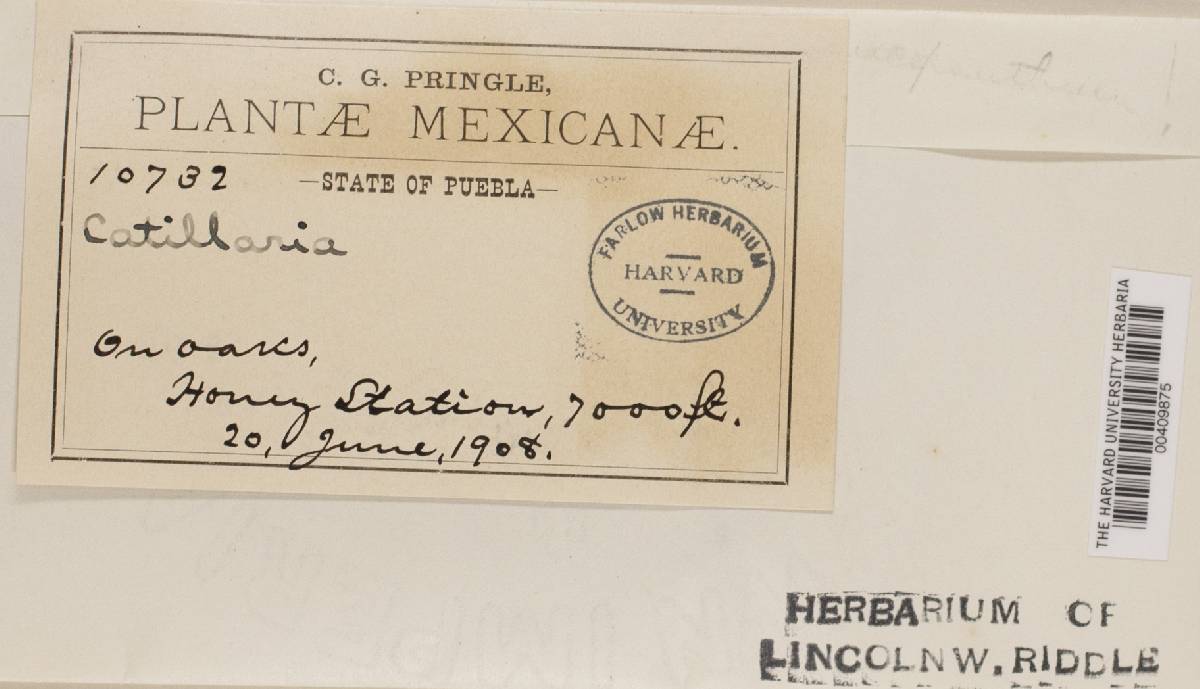 C. G. PRINGLE,
PLANTÆ MEXICANÆ.
10732 —STATE OF PUEBLA—
Catillaria
FARLOW HERBARIUM
HARVARD
UNIVERSITY
On oaks,
Honey Station, 7000 ft.
20, June, 1908.
THE HARVARD UNIVERSITY HERBARIA
00409875
HERBARIUM OF
LINCOLN W. RIDDLE